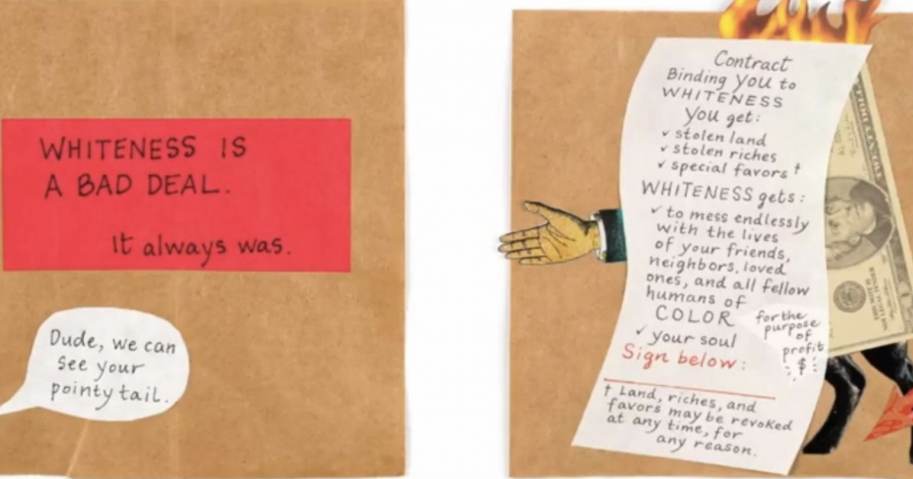 WHITENESS IS
A BAD DEAL.
It always was.
Dude, we can
see your
pointy tail.
Contract
Binding you to
WHITENESS
You get:
✓ stolen land
✓ stolen riches
✓ special favors †
WHITENESS gets:
✓ to mess endlessly
with the lives
of your friends,
neighbors, loved
ones, and all fellow
humans of
COLOR
✓ your soul
for the
purpose
of
profit
$
Sign below:
† Land, riches, and
favors may be revoked
at any time, for
any reason.